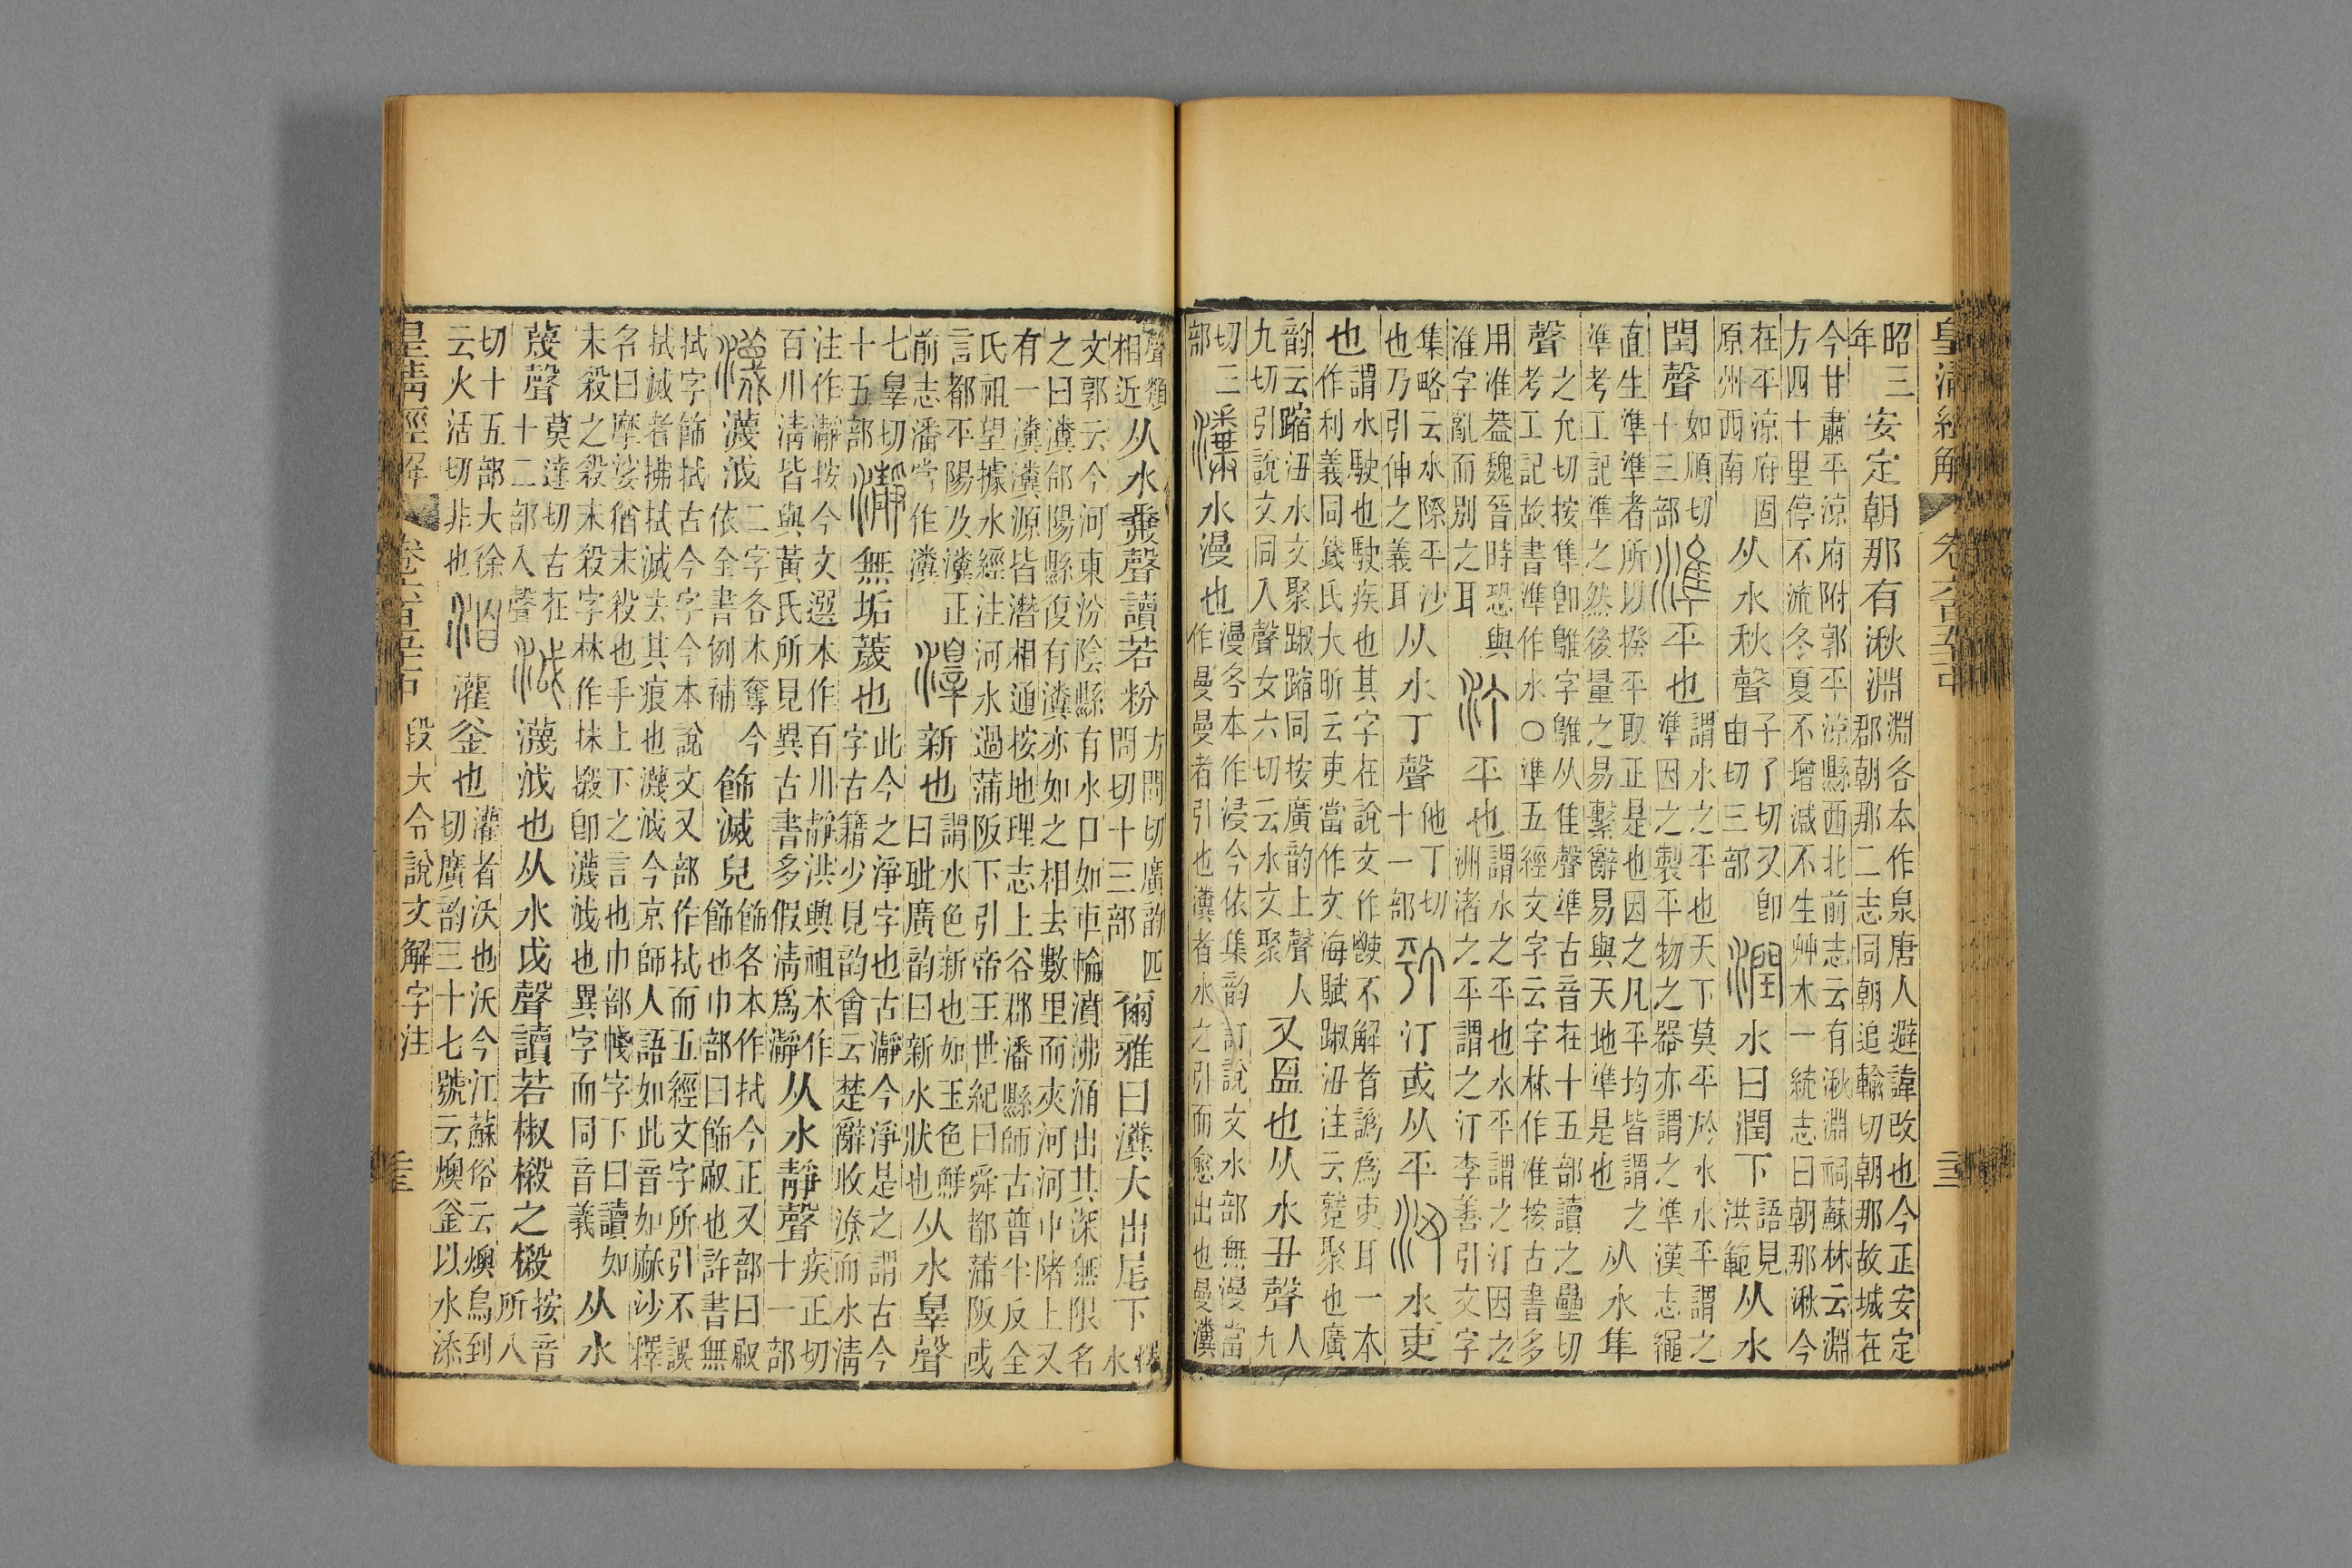 皇清經解 卷六百五十一
昭三年安定朝那有湫淵淵各本作泉唐人避諱改也今正安定郡朝那二志同朝追輸切朝那故城在
今甘肅平涼府附郭平涼縣西北前志云有湫淵祠蘇林云淵方四十里停不流冬夏不增減不生艸木一統志曰朝那湫今
在平涼府固原州西南从水秋聲子了切又卽由切三部潤水曰潤下語見洪範从水
閏聲如順切十三部準平也謂水之平也天下莫平於水水平謂之準因之製平物之器亦謂之準漢志繩
直生準準者所以揆平取正是也因之凡平均皆謂之準考工記準之然後量之易繫辭易與天地準是也从水隼
聲之允切按隼卽鵻字鵻从隹聲準古音在十五部讀之壘切考工記故書準作水〇準五經文字云字林作准按古書多
用准葢魏晉時恐與淮字亂而別之耳汀平也謂水之平也水平謂之汀因之洲渚之平謂之汀李善引文字
集略云水際平沙也乃引伸之義耳从水丁聲他丁切十一部汀或从平沑水吏
也謂水駛也駛疾也其字在說文作不解者譌爲吏耳一本作利義同錢氏大昕云吏當作文海賦踧沑注云蹙聚也廣
韵云蹜沑水文聚踧蹜同按廣韵上聲人九切引說文同入聲女六切云水文聚又𥁃也从水丑聲人九
切三部瀵水漫也漫各本作浸今依集韵訂說文水部無漫當作曼曼者引也瀵者水之引而愈出也曼瀵
聲類相近从水糞聲讀若粉方問切廣韵匹問切十三部爾雅曰瀵大出尾下釋水
文郭云今河東汾陰縣有水口如車輪濆沸涌出其深無限名之曰瀵郃陽縣復有瀵亦如之相去數里而夾河河中陼上又
有一瀵瀵源皆潛相通按地理志上谷郡潘縣師古普半反全氏祖望據水經注河水過蒲阪下引帝王世紀曰舜都蒲阪或
言都平陽乃瀵正前志潘當作瀵新也謂水色新也如玉色鮮曰玼廣韵曰新水狀也从水辠聲
七辠切十五部瀞無垢薉也此今之淨字也古瀞今淨是之謂古今字古籍少見韵會云楚辭收潦而水淸
注作瀞按今文選本作百川靜洪興祖本作瀞百川淸皆與黃氏所見異古書多假淸爲瀞从水靜聲疾正切十一部
瀎瀎泧二字各本奪今依全書例補飾滅皃飾各本作拭今正又部曰㕞飾也巾部曰飾㕞也許書無
拭字飾拭古今字今本說文又部作拭而五經文字所引不誤拭滅者拂拭滅去其痕也瀎泧今京師人語如此音如麻沙釋
名曰摩娑猶末殺也手上下之言也巾部㡜字下曰讀如末殺之殺末殺字林作抹摋卽瀎泧也異字而同音義从水
蔑聲莫達切古在十二部入聲泧瀎泧也从水戉聲讀若椒樧之樧按音所八
切十五部大徐云火活切非也洎灌釜也灌者沃也沃今江蘇俗云燠烏到切廣韵三十七號云燠釜以水添
皇清經解 卷六百五十一 段大令說文解字注